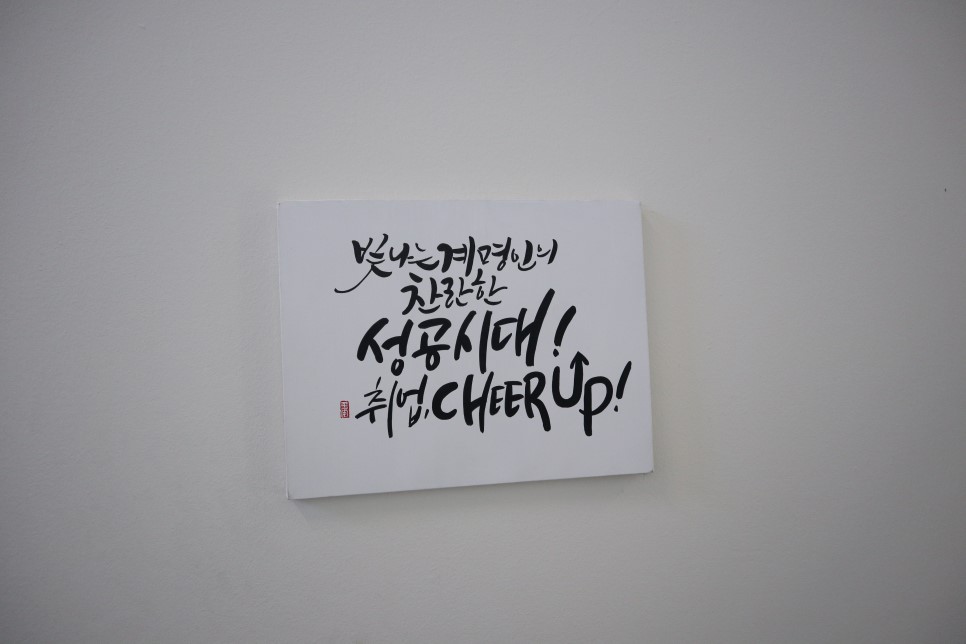 빛나는 계명인의
찬란한
성공시대!
취업, CHEER UP!